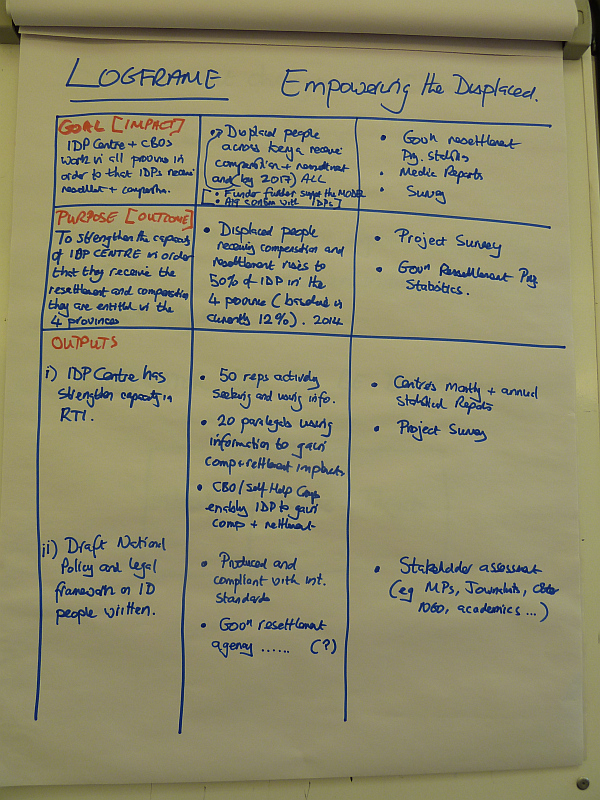 LOGFRAME Empowering the Displaced.
GOAL [IMPACT]
IDP Centre + CBOs
work in all province in
order to that IDPs receive
resettlent + compensation.
Displaced people
across kenya receive
compensation + resettlement
and (by 2017) ALL
[• Funder further support the MODEL
• API with IDPs]
• Govn resettlement
Prg. statistics
• Media Reports
• Survey
PURPOSE [OUTCOME]
To strengthen the capacity
of IDP CENTRE in order
that they receive the
resettlement and compensation
they are entitled in the
4 provinces
• Displaced people
receiving compensation and
resettlement rises to
50% of IDP in the
4 province (baseline is
currently 12%). 2014
• Project Survey
• Govn Ressettlement Prg
Statistics.
OUTPUTS
i) IDP Centre has
strengthen capacity in
RTI.
• 50 reps actively
seeking and using info.
• 20 paralegals using
information to gain
comp + rettlement
• CBO/Self Help Grps
enably IDP to gain
comp + rettlement
• Centres montly + annual
statistical Reports
• Project Survey
ii) Draft National
Policy and legal
framework on ID
people written.
• Produced and
compliant with int.
standards
• Govn resettlement
agency ...... (?)
• Stakeholder assessment
(eg MPs, Journalists,
academics ...)